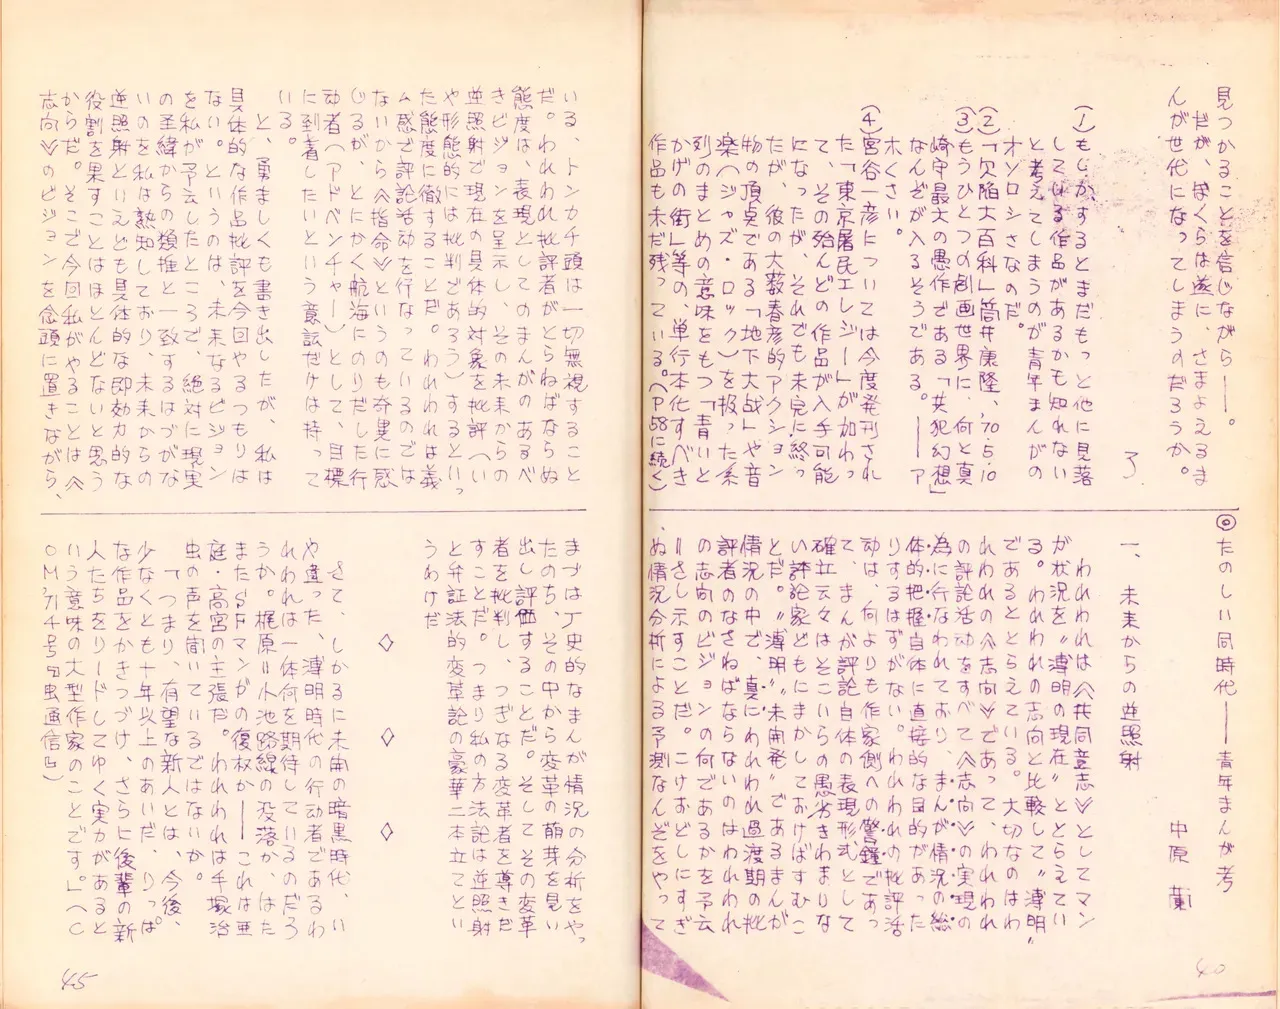 見つかることを信じながら――。
だが、ぼくらは遂に、さまよえるま
んが世代になってしまうのだろうか。
了
(1)もしかするとまだもっと他に見落
している作品があるかも知れない
と考えてしまうのが青年まんがの
オソロシさなのだ。
(2)「欠陥大百科」筒井康隆、'70.5.10
(3)もうひとつの劇画世界に、何と真
崎守最大の愚作である「共犯幻想」
なんぞが入るそうである。――ア
ホくさい。
(4)宮谷一彦については今度発刊され
た「東京屠民エレジー」が加わっ
て、その殆んどの作品が入手可能
になったが、それでも未完に終っ
たが、彼の大薮春彦的アクション
物の頂点である「地下大戦」や音
楽(ジャズ・ロック)を扱った系
列のまとめの意味をもつ「青いと
かげの街」等の、単行本化すべき
作品も未だ残っている。(P58に続く)
◎たのしい同時代――青年まんが考
中原 蘭
一、未来からの逆照射
われわれは《共同意志》としてマン
が状況を〝薄明の現在〟ととらえてい
る。われわれの志向と比較して〝薄明〟
であるととらえている。大切なのはわ
れわれの《志向》であって、われわれ
の評論活動をすべて《志向》の実現の
為に行なわれており、まんが情況の総
体的把握自体に直接的な目的があった
りするはずがない。われわれの批評活
動は、何よりも作家側への警鐘であっ
て、まんが評論自体の表現形式として
確立云々はそこいらの愚劣きわまりな
い評論家どもにまかしておけばすむこ
とだ。〝薄明〟〝未開発〟であるまんが
情況の中で、真にわれわれ過渡期の批
評者のなさねばならないのはわれわれ
の志向のビジョンの何であるかを予云
＝さし示すことだ。こけおどしにすぎ
ぬ情況分析による予測なんぞをやって
いる、トンカチ頭は一切無視すること
だ。われわれ批評者がとらねばならぬ
態度は、表現としてのまんがのあるべ
きビジョンを呈示し、その未来からの
逆照射で現在の具体的対象を批評(い
や形態的には批判であろう)するといっ
た態度に徹することだ。われわれは義
ム感で評論活動を行なっているのでは
ないから《指命》というのも奇異に感
じるが、とにかく航海にのりだした行
動者(アドベンチャー)として、目標
に到着したいという意識だけは持って
いる。
と、勇ましくも書き出したが、私は
具体的な作品批評を今回やるつもりは
ない。というのは、未来なるビジョン
を私が予云したところで、絶対に現実
の圣緯からの類推と一致するはづがな
いのを私は熟知しており、未来からの
逆照射といえども具体的な即効力的な
役割を果すことはほとんどないと思う
からだ。そこで今回私がやることは《
志向》のビジョンを念頭に置きながら、
まづは丿史的なまんが情況の分析をやっ
たのち、その中から変革の萌芽を見い
出し評価することだ。そしてその変革
者を批判し、つぎなる変革者を導きだ
すことだ。つまり私の方法論は逆照射
と弁証法的変革論の豪華二本立てとい
うわけだ
◇ ◇ ◇
さて、しかるに未開の暗黒時代、い
や違った、薄明時代の行動者であるわ
れわれは一体何を期待しているのだろ
うか。梶原＝小池路線の没落か、はた
またSFマンがの復权か――これは亜
庭・高宮の主張だ。われわれは手塚治
虫の声を聞いているではないか。
「つまり、有望な新人とは、今後、
少なくとも十年以上のあいだ、りっぱ
な作品をかきつづけ、さらに後輩の新
人たちをリードしてゆく実力があると
いう意味の大型作家のことです。」(C
OM'71 4号「虫通信」)
45
40